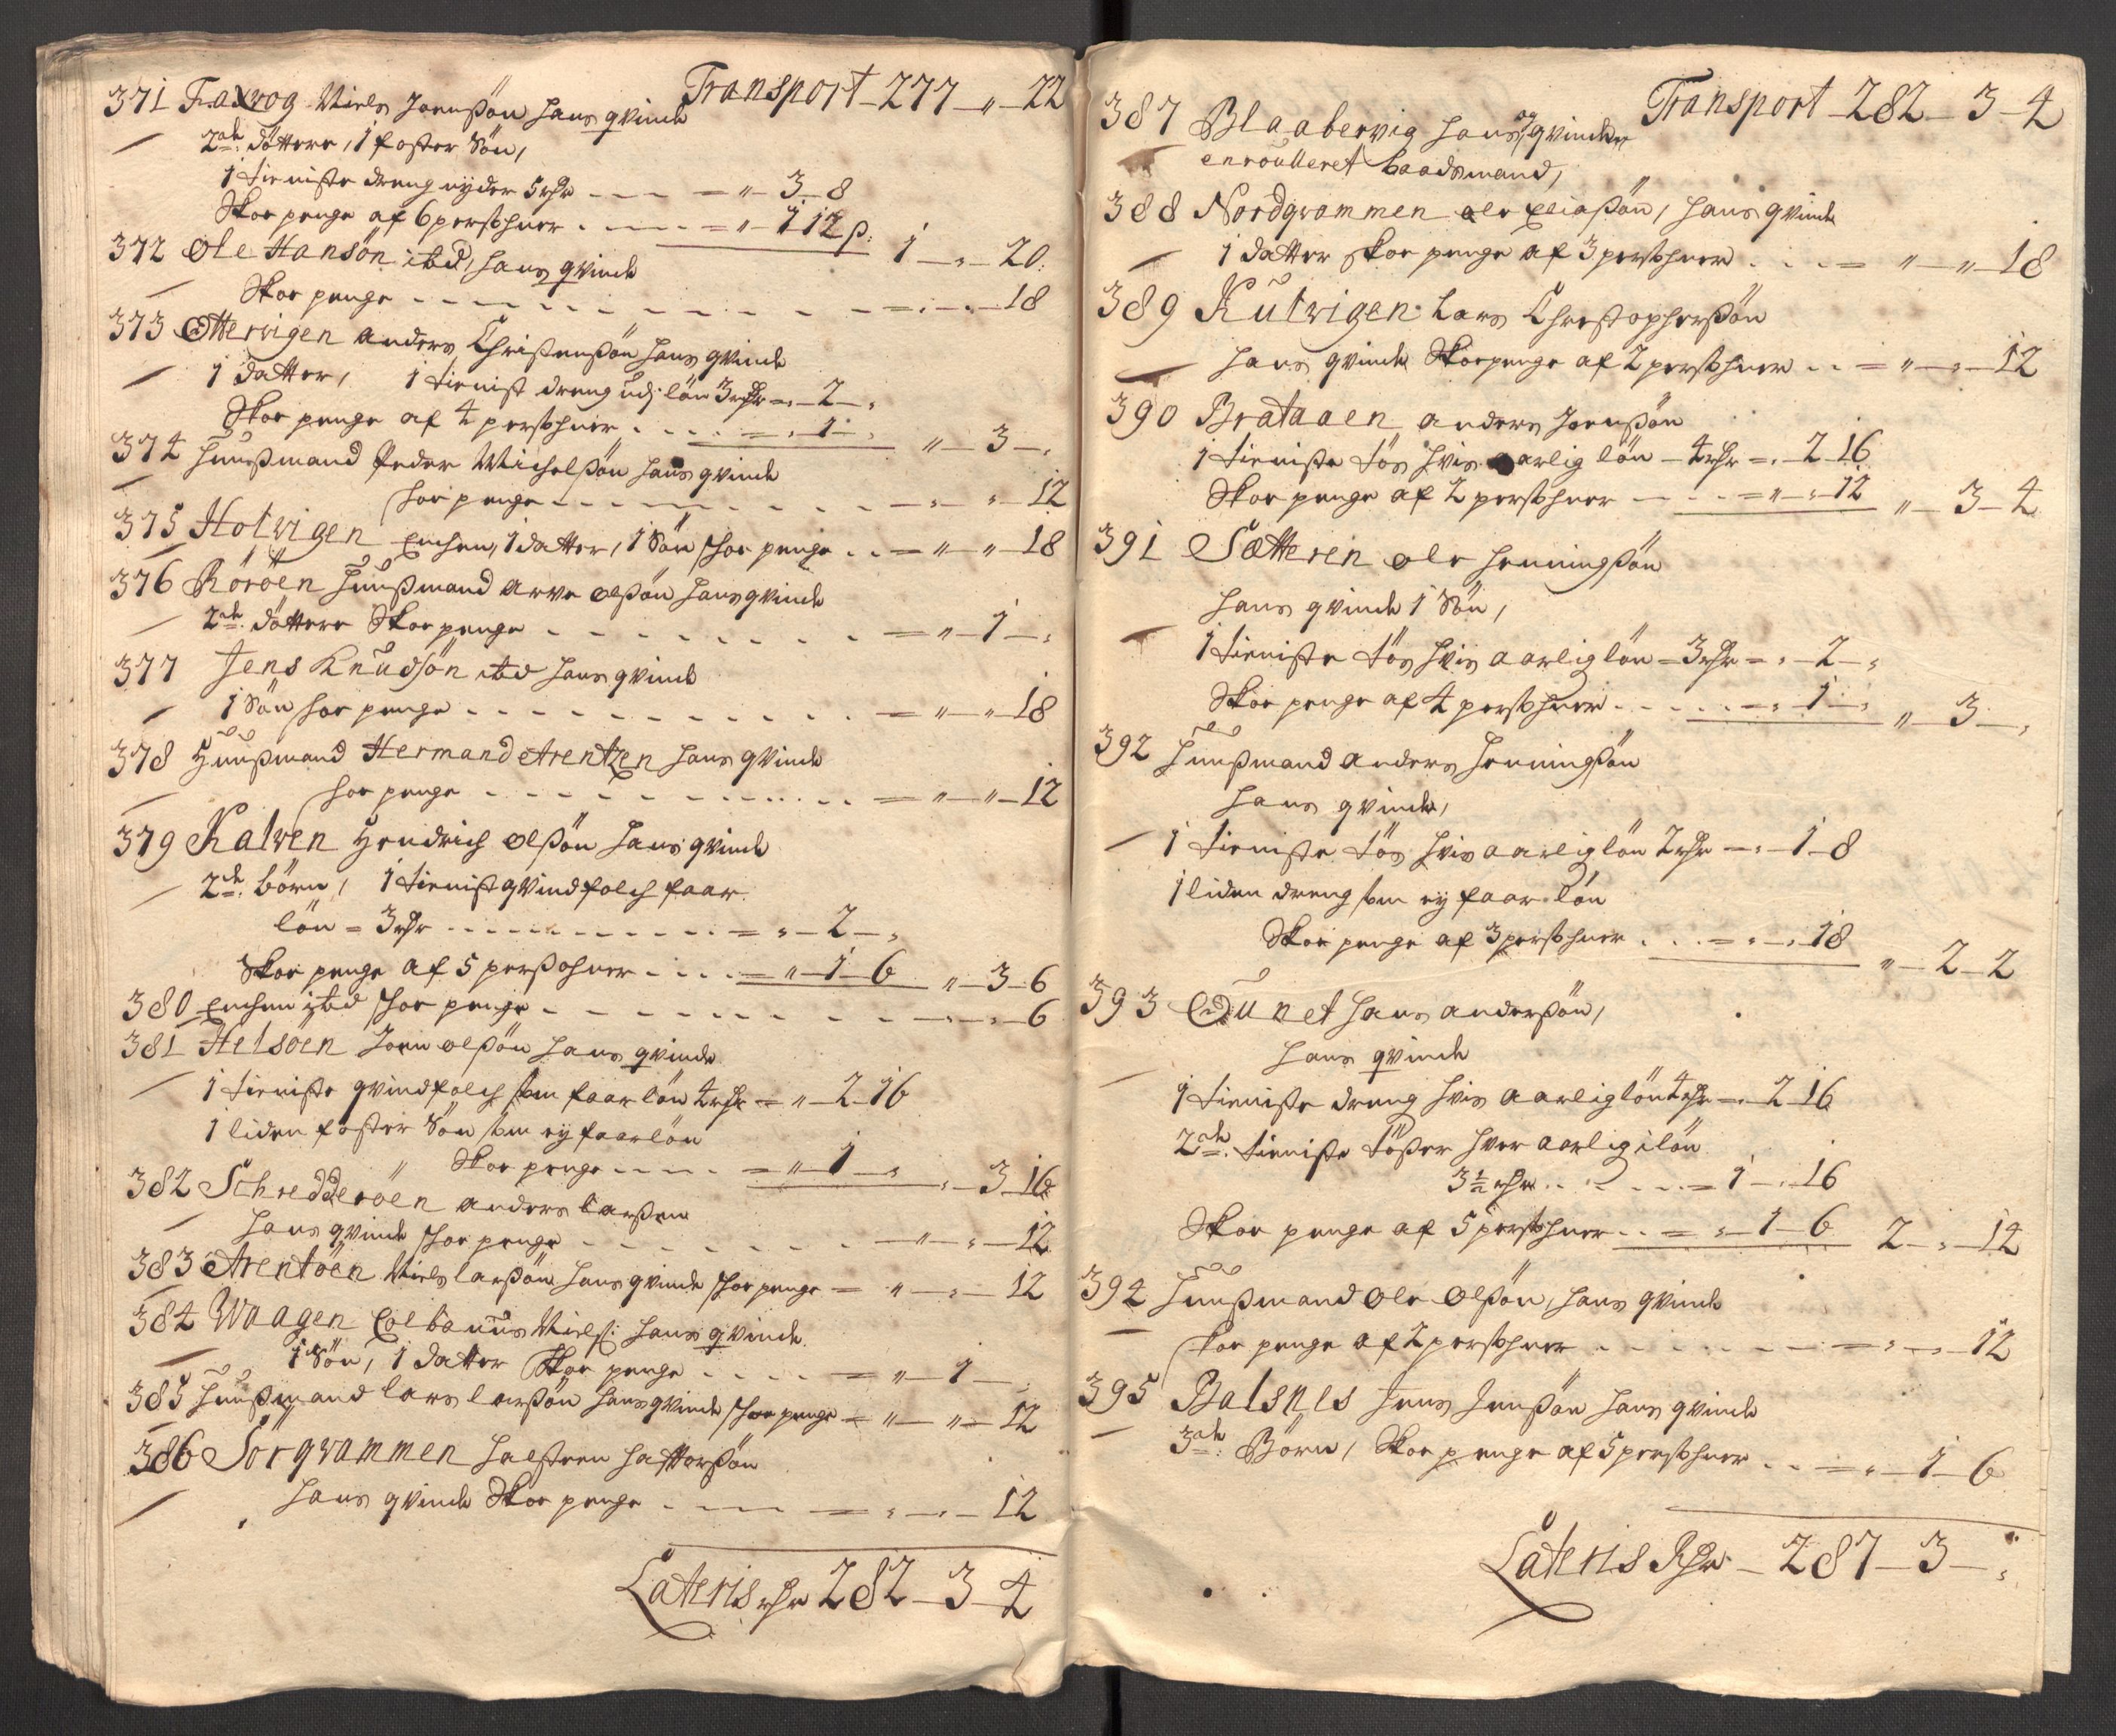 Transport - 277 - " - 22
371 Faxvog Niels Jonßön hans qvinde
2de döttere, 1 foster Sön,
1 tieniste dreng nyder 5 rdr - - - = " - 3 - 8
Skoe penge af 6 perßohner . - - . = " - 1 12 β: 1 - " - 20.
372 Ole Hansön ibd, hans qvinde
Skoe penge - - - - - - - - - = " - " - 18
373 Ottervigen anders Christenßön hans qvinde
1 datter, 1 tienist dreng udj lön 3 rdr = " - 2 - "
Skoe penge af 4 perßohner . - . . = " 1 - " " - 3 - "
374 huußmand Peder Michelßön hans qvinde
skoe penge - - - - - - - - - " - " - 12
375 Holvigen Enchen, 1 datter, 1 Sön skoe penge . . = " - " - 18
376 Röröen huußmand Arve olßön hans qvinde
2de döttere Skoe penge - - - - - - - = " - 1 - "
377 Jens Knudsön ibd hans qvinde
1 Sön skoe penge - - - - - - - - = " - " 18
378 Huußmand Hermand Arentzen hans qvinde
skoe penge - - - - - - - = " - " - 12
379 Kalven Hendrich olßön hans qvinde
2de börn, 1 tienist qvindfolch faar
lön = 3 rdr - - - - - - - = " - 2 - "
Skoe penge af 5 perßohner . . . = " - 1 - 6 " - 3 - 6
380 Enchen ibd skoe penge - - - - - - - " - " - 6
381 Helsöen Jonn olßön hans qvinde
1 tieniste qvindfolch som faar lön 4 rdr = " - 2 - 16
1 liden foster Sön som ey faar lön
Skoe penge - - - . = " - 1 - " " - 3 16
382 Schredderöen anders larßen
hans qvinde skoe penge - - - - - - - " - " - 12
383 Arentöen Niels larßön hans qvinde skoe penge = " - " - 12
384 Waagen Colbanus Nielß: hans qvinde
1 Sön, 1 datter Skoe penge . . . . = " - 1 - "
385 huußmand lars larßön hans qvinde skoe penge = " - " - 12
386 Sörqvammen
hans qvinde Skoe penge - - - - = " - " - 12
Lateris rdr 282 - 3 - 4
Transport - 282 - 3 - 4
387 Blaabervig hans og qvinden
enroulleret baadsmand,
388 Nordqvammen ole Eliaßön, hans qvinde
1 datter skoe penge af 3 perßohner . . . = " - " - 18
389 Kulvigen lars Christopherßön
hans qvinde Skoepenge af 2 perßohner . . = " - " - 12
390 Brataaen anders Jonßön
1 tieniste tös hvis aarlig lön - 4 rdr = " - 2 16
Skoe penge af 2 perßohner - - . = " - " 12 " - 3 - 4
391 Sætteren ole henningßön
hans qvinde 1 Sön,
1 tieniste tös hvis aarlig lön - 3 rdr = " - 2 - "
Skoe penge af 4 perßohner . . . . = " 1 - " " - 3 - "
392 huußmand anders henningßön
hans qvinde,
1 tieniste tös hvis aarlig lön 2 rdr = " - 1 - 8
1 liden dreng som ey faar lön
Skoe penge af 3 perßohner . . . = " - " 18 " - 2 - 2
393 Qunet hans anderßön,
hans qvinde
1 tieniste dreng hvis aarlig lön 4 rdr = " - 2 16
2de tieniste tößer hver aarlig i lön
3½ rdr . . - . . . = 1 - " - 16
Skoe penge af 5 perßohner . . = " - 1 - 6 2 - " - 14
394 huußmand Ole olßön, hans qvinde
skoe penge af 2 perßohner . - - - - - = " - " - 12
395 Balsnes Jens Jenßön hans qvinde
3de Börn, Skoe penge af 5 perßohner . . = " - 1 - 6
Lateris Rdr - 287 - 3 - "